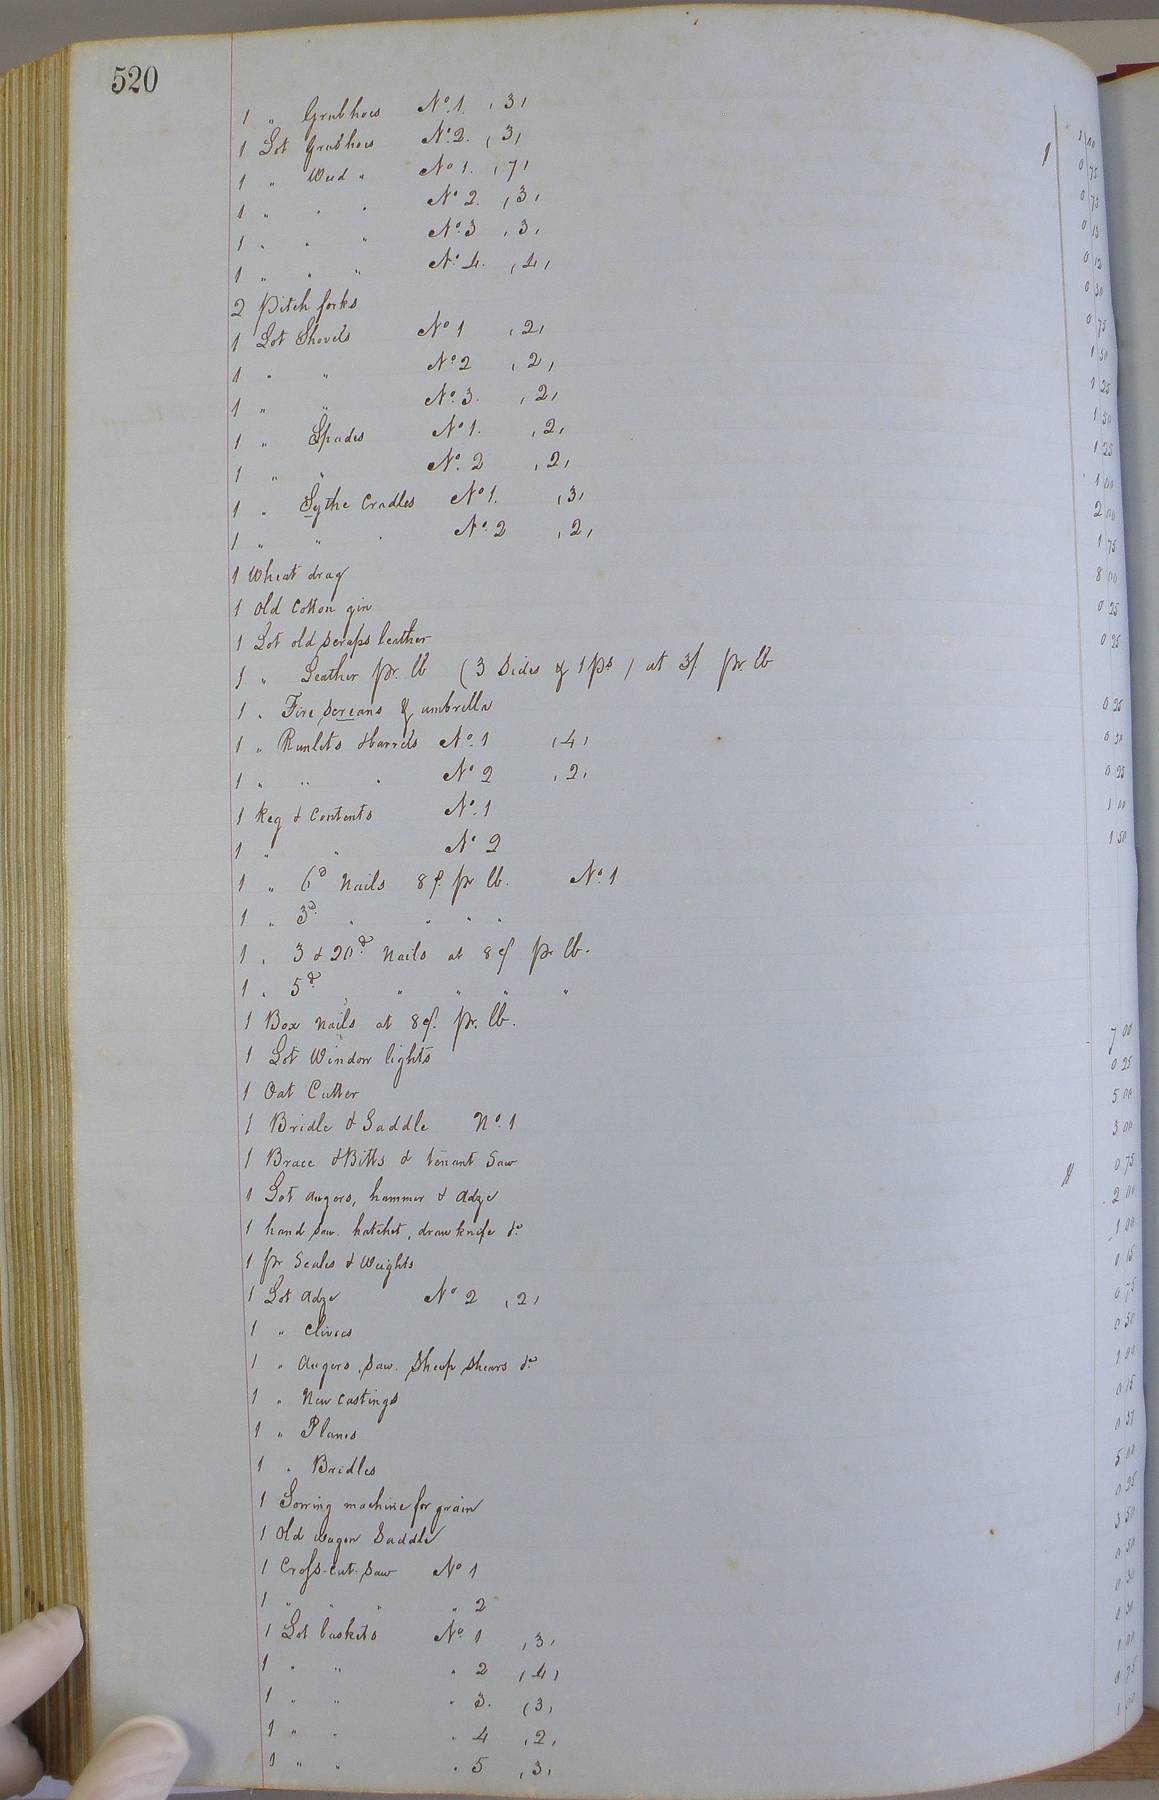 520
1 " Grubhoes No. 1. (3) 1 00
1 Lot Grubhoes No. 2. (3) 0 75
1 " Weed " No 1. (7) 0 75
1 " " " No 2. (3)
1 " " " No. 3 (3) 0 12
1 " " " No. 4. (4) 0 30
2 Pitch forks 0 75
1 Lot Shovels No 1 (2) 1 50
1 " " No. 2 (2) 1 25
1 " " No. 3. (2) 1 50
1 " Spades No 1. (2) 1 25
1 " " No. 2 (2) 1 00
1 " Sythe Cradles No 1. (3) 2 00
1 " " " No. 2 (2) 1 75
1 Wheat drag 8 00
1 Old Cotton gin 0 25
1 Lot old scraps leather 0 25
1 " Leather pr. lb (3 Sides & 1 ps) at 3¢ pr. lb
1 " Fire screans & umbrella 0 25
1 " Runlets & barrels No. 1 (4) 0 50
1 " " " No 2 (2) 0 25
1 Keg & Contents No. 1 1 00
1 " " No 2 1 50
1 " 6d Nails 8¢ pr lb. No. 1
1 " 3d " " " "
1 " 3 & 20d Nails at 8¢ pr lb.
1 " 5d " " " "
1 Box Nails at 8¢ pr. lb.
1 Lot Window lights 7 00
1 Oat Cutter 0 25
1 Bridle & Saddle No. 1 5 00
1 Brace & Bitts & tenant Saw 3 00
1 Lot augers, hammer & Adze 0 75
1 hand saw. hatchet, draw knife &c 2 00
1 pr Scales & Weights 1 00
1 Lot Adze No 2 (2) 0 15
1 " Clivics 0 75
1 " Augers, saw. Sheep shears &c 0 50
1 " New castings 1 00
1 " Planes 0 15
1 " Bridles 0 37
1 Sowing machine for grain 5 00
1 Old wagon Saddle 0 25
1 Cross-cut-saw No 1 3 50
1 " " " " 2 0 50
1 Lot baskets No. 1 (3) 0 30
1 " " " 2 (4) 0 30
1 " " " 3. (3) 1 00
1 " " " 4 (2) 0 75
1 " " " 5 (3) 1 00